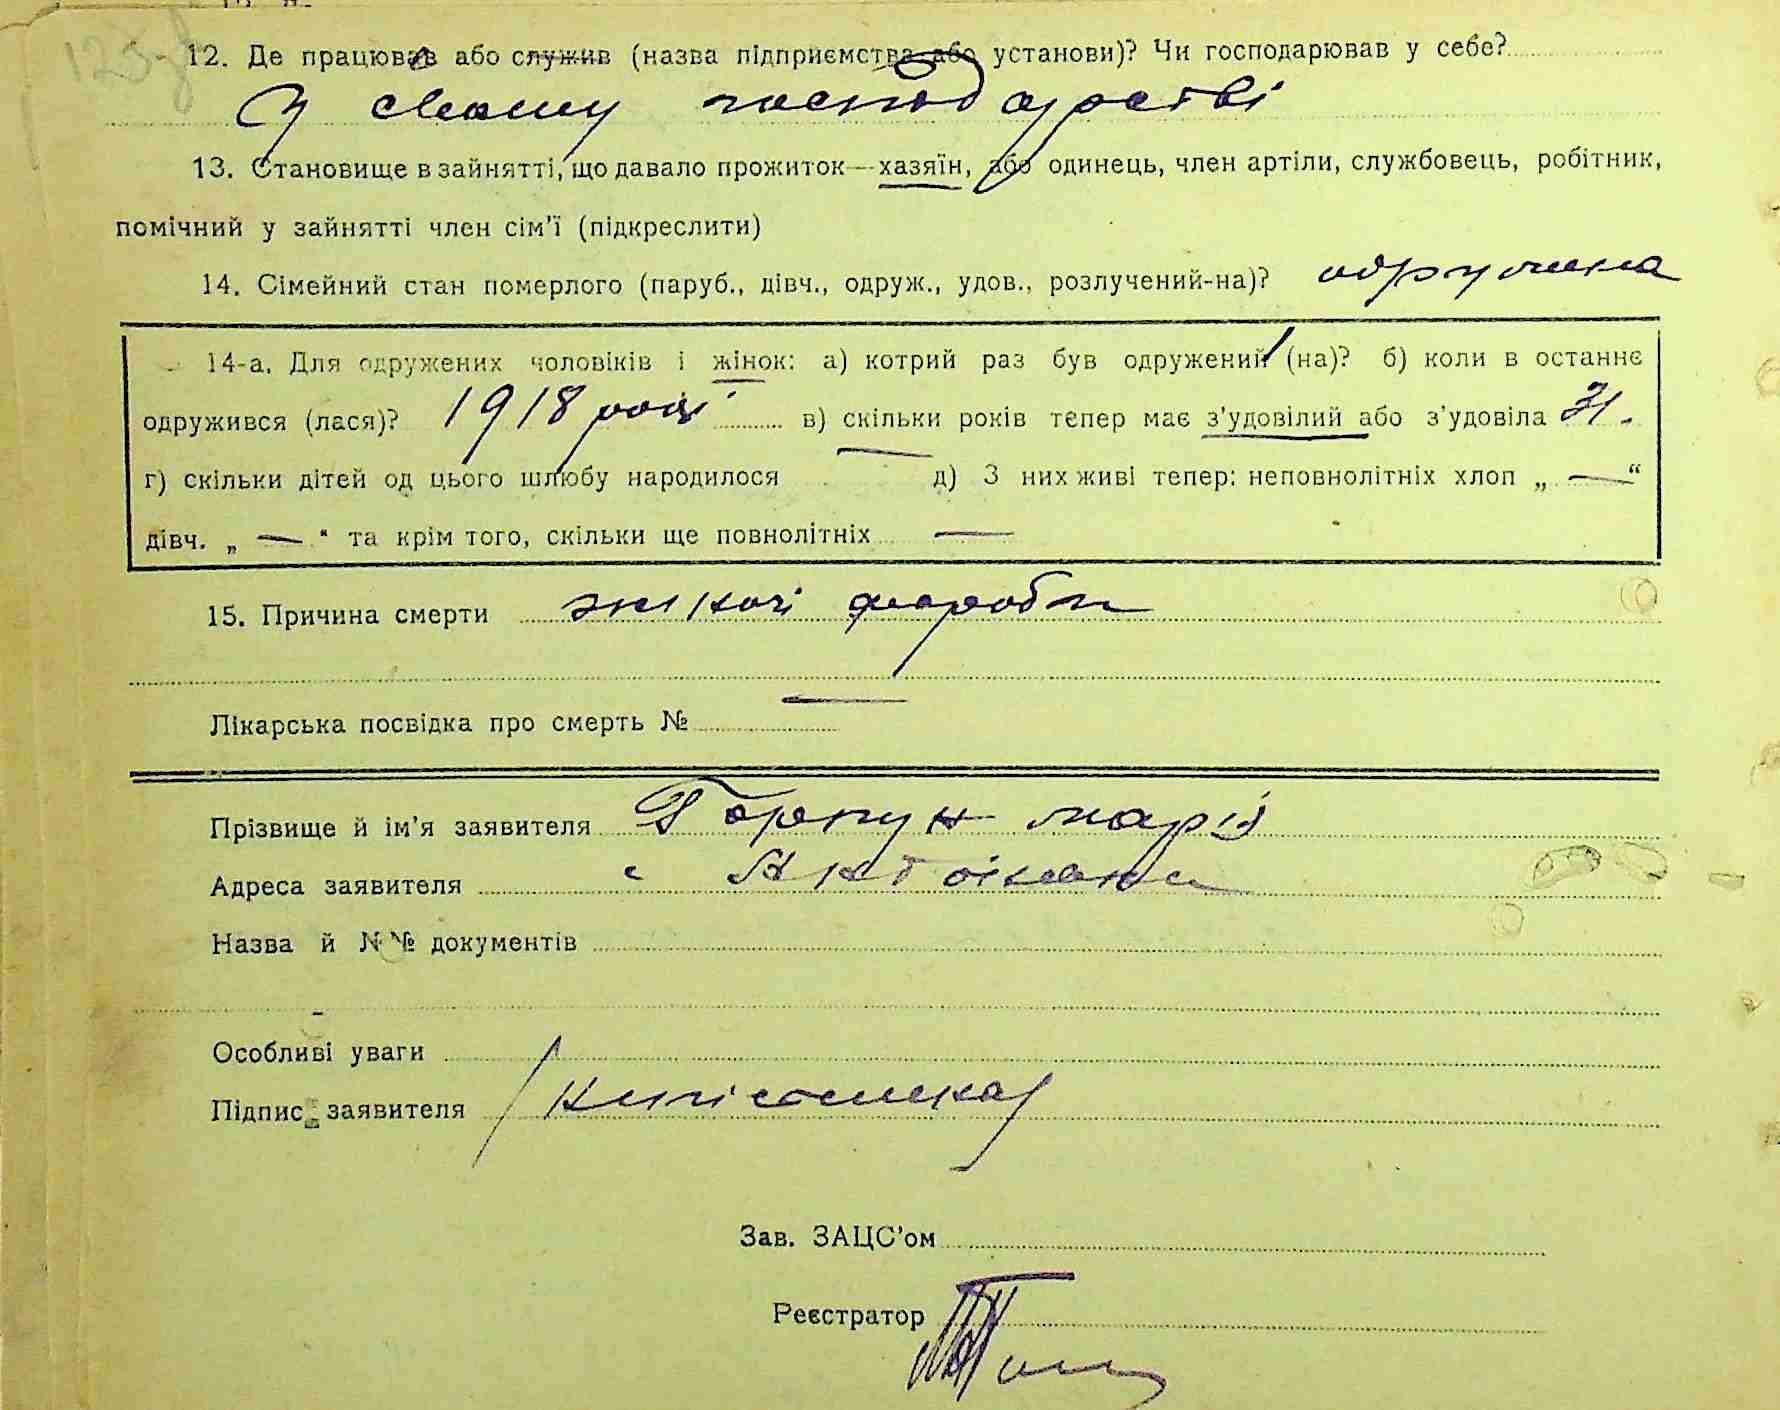 12. Де працював або служив (назва підприємства або установи)? Чи господарював у себе?
У своєму господарстві
13. Становище в зайнятті, що давало прожиток—хазяїн, або одинець, член артіли, службовець, робітник,
помічний у зайнятті член сім'ї (підкреслити)
14. Сімейний стан померлого (паруб., дівч., одруж., удов., розлучений-на)? одружена
14-а. Для одружених чоловіків і жінок: а) котрий раз був одружений (на)? 1 б) коли в останнє
одружився (лася)? 1918 році в) скільки років тепер має з'удовілий або з'удовіла 31.
г) скільки дітей од цього шлюбу народилося — д) З них живі тепер: неповнолітніх хлоп „ — “
дівч. „ — “ та крім того, скільки ще повнолітніх —
15. Причина смерти жіночі хвороби
Лікарська посвідка про смерть № —
Прізвище й ім'я заявителя Марія
Адреса заявителя с
Назва й №№ документів
Особливі уваги
Підпис заявителя
Зав. ЗАЦС'ом
Реєстратор